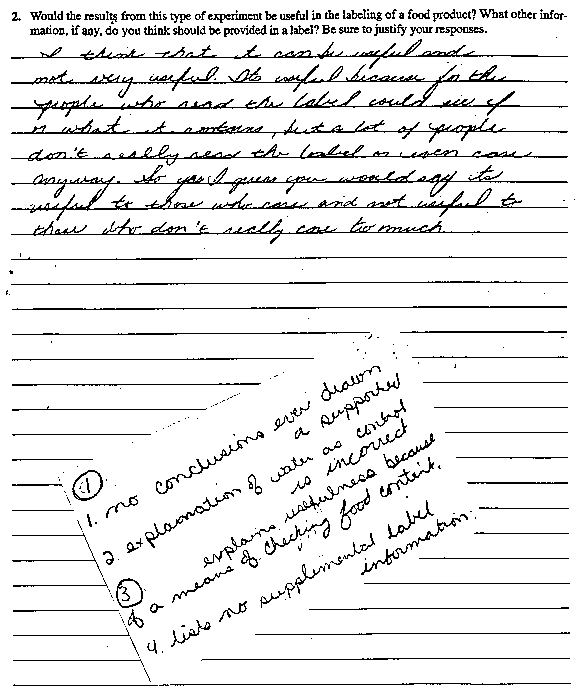 2. Would the results from this type of experiment be useful in the labeling of a food product? What other infor-
mation, if any, do you think should be provided in a label? Be sure to justify your responses.
I think that it can be useful and
not very useful. Its useful because for the
people who read the label could see if
or what it contains, but a lot of people
don't really read the label or even care
anyway. So yes I guess you would say its
useful to those who care and not useful to
those who don't really care too much
1
1. no conclusions ever drawn
a supported
2. explanation of water as control
is incorrect
3
explains usefulness because
of a means of checking food content.
4. lists no supplemental label
information.